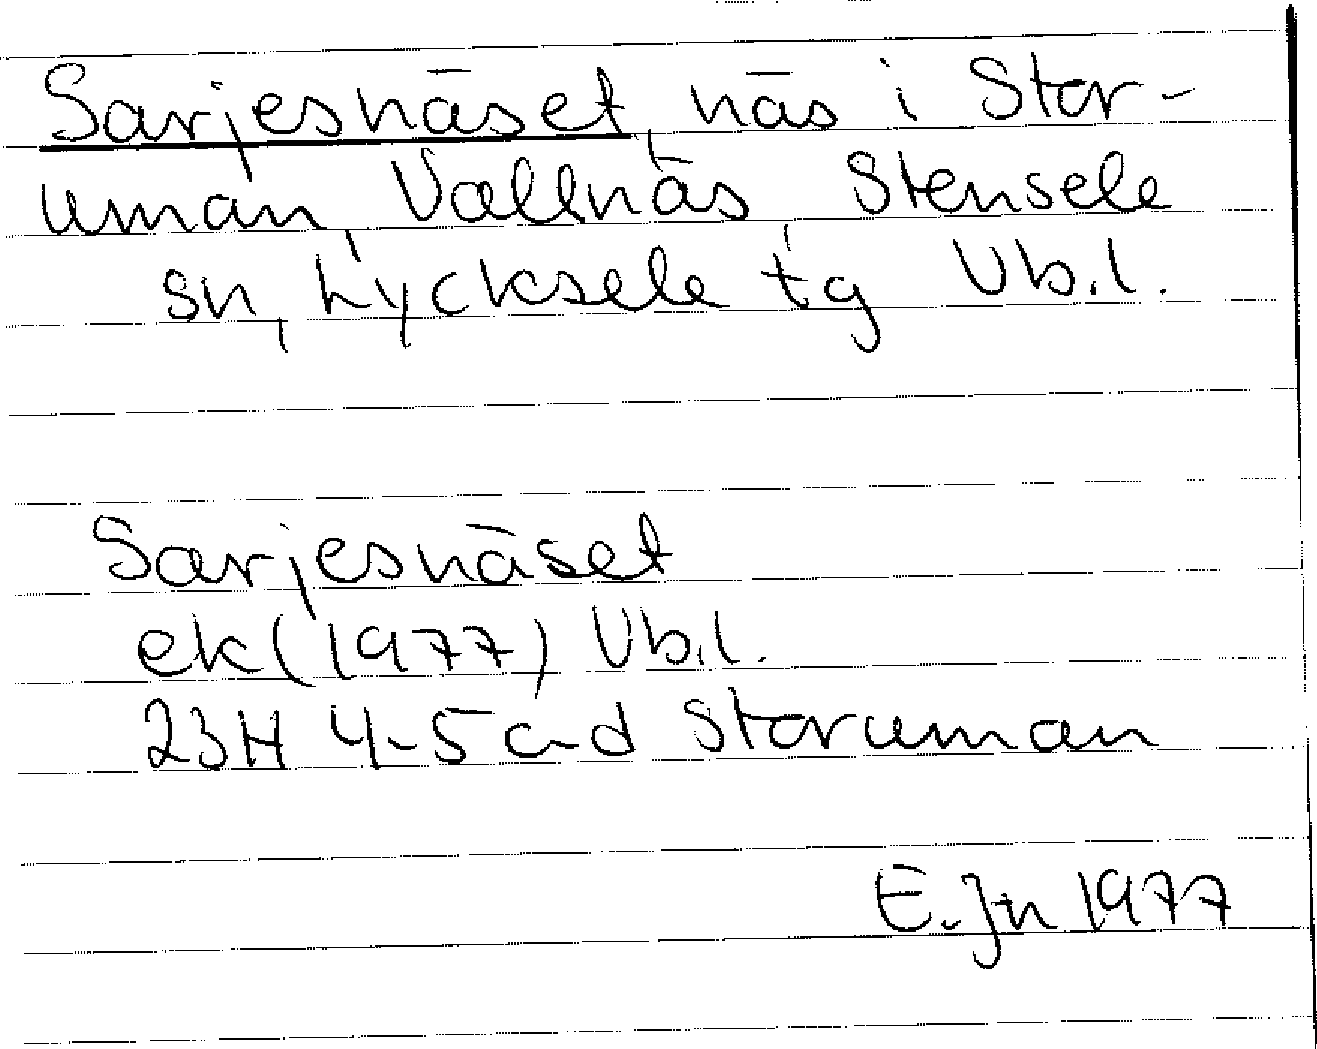 Sarjesnäset, näs i Stor-
uman, Vallnäs Stensele
sn, Lycksele tg Vb.l.
Sarjesnäset
ek (1977) Vb.l.
23H 4-5 c-d Storuman
E. Jn 1977